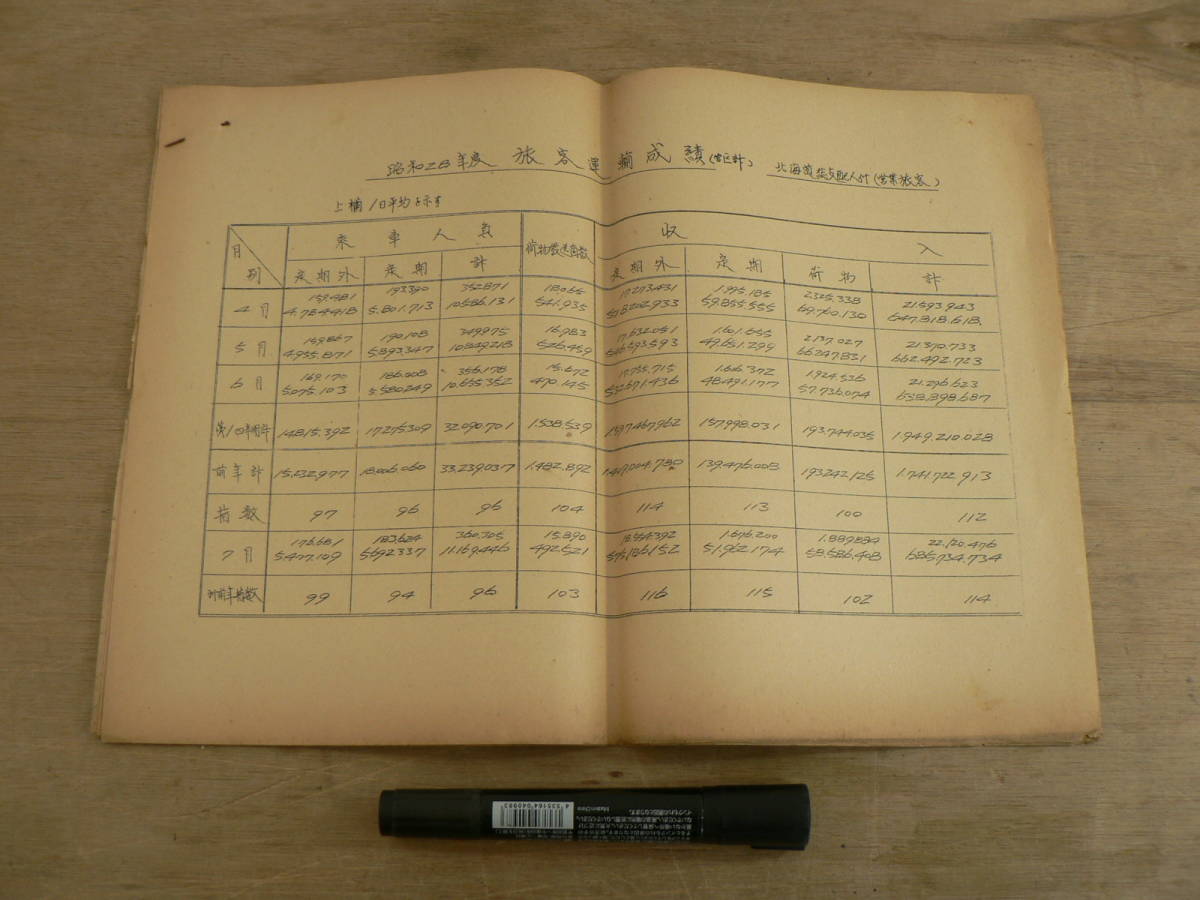 昭和28年度 旅客運輸成績(管区計) 北海道総支配人付(営業旅客)
上欄1日平均を示す
月別 乗車人員 荷物發送個数 收入
定期外 定期 計 定期外 定期 荷物 計
159.481 193.390 352.871 18.065 17.273.431 1.995.185 2.325.338 21.593.943
4月 4.784.418 5.801.713 10.586.131 541.935 518.202.933 59.855.555 69.760.130 647.818.618
159.867 190.108 349.975 16.983 17.632.051 1.601.655 2.137.027 21.370.733
5月 4.955.871 5.893.347 10.849.218 526.459 546.593.593 49.651.299 66.247.831 662.492.723
169.170 186.008 355.178 15.672 17.755.715 1.616.372 1.924.536 21.296.623
6月 5.075.103 5.580.249 10.655.352 470.145 532.671.436 48.491.177 57.736.074 638.898.687
第1四半期計 14.815.392 17.275.309 32.090.701 1.538.539 1.597.467.962 157.998.031 193.744.035 1.949.210.028
前年計 15.232.977 18.006.060 33.239.037 1.482.892 1.409.004.780 139.476.008 193.242.125 1.741.722.913
指数 97 96 96 104 114 113 100 112
176.681 183.624 360.305 15.890 18.554.392 1.676.200 1.889.884 22.120.476
7月 5.477.109 5.692.337 11.169.446 492.521 575.186.152 51.962.174 58.586.408 685.734.734
対前年指数 99 94 96 103 116 115 102 114
4 535164 040983
MadeinChina